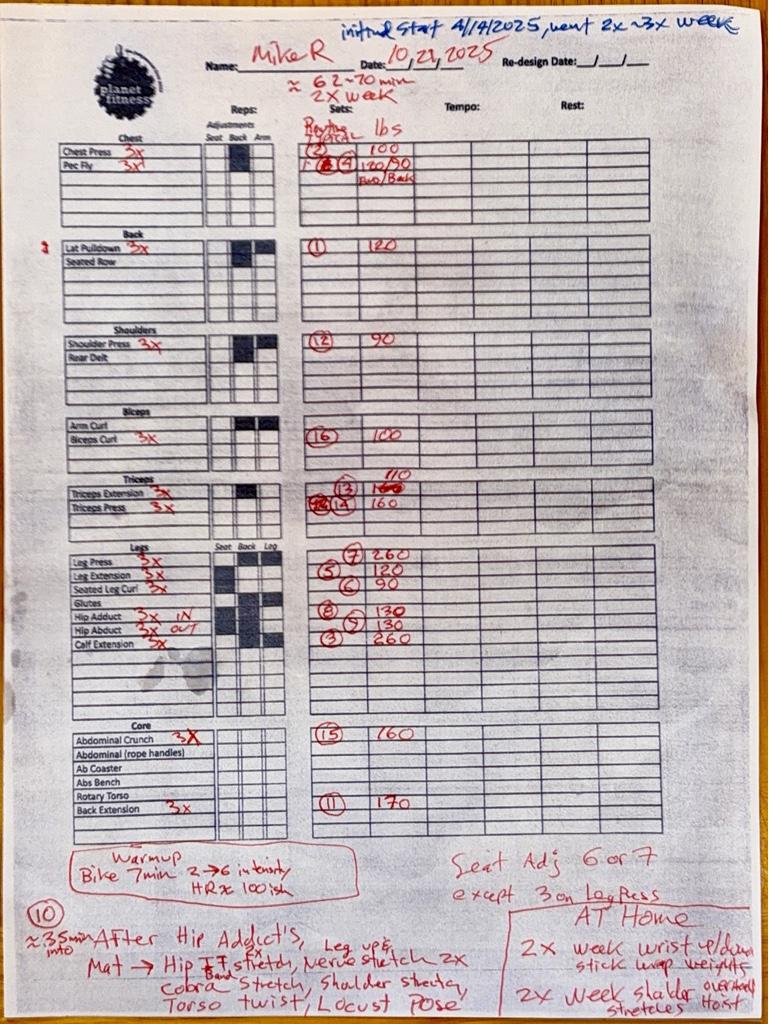 initial start 4/14/2025, went 2x~3x week
planet fitness
Name: Mike R Date: 10/21/2025 Re-design Date: __/__/__
≈ 62~70 min
2x week
Reps: Sets: Tempo: Rest:
Adjustments
Routine lbs
Chest Seat Back Arm
Chest Press 3x (2) 100
Pec Fly 3x (4) 120/90
Fwd/Back
Back
Lat Pulldown 3x (1) 120
Seated Row
Shoulders
Shoulder Press 3x (12) 90
Rear Delt
Biceps
Arm Curl
Biceps Curl 3x (16) 100
Triceps 110
Triceps Extension 3x (13)
Triceps Press 3x (14) 160
Legs Seat Back Leg
Leg Press 3x (7) 260
Leg Extension 3x (5) 120
Seated Leg Curl 3x (6) 90
Glutes
Hip Adduct 3x IN (8) 130
Hip Abduct 3x OUT (9) 130
Calf Extension 3x (3) 260
Core
Abdominal Crunch 3x (15) 160
Abdominal (rope handles)
Ab Coaster
Abs Bench
Rotary Torso
Back Extension 3x (11) 170
Warmup
Bike 7min 2→6 intensity
HR ≈ 100ish
Seat Adj 6 or 7
except 3 on Leg Press
(10)
≈35min into
After Hip Addict's, Leg up &
Mat → Hip stretch, Nerve stretch 2x
Band
Cobra Stretch, Sholder stretch,
Torso twist, Locust Pose
AT Home
2x week wrist up/down
stick wrap weights
2x week sholder overhead
stretches Hoist